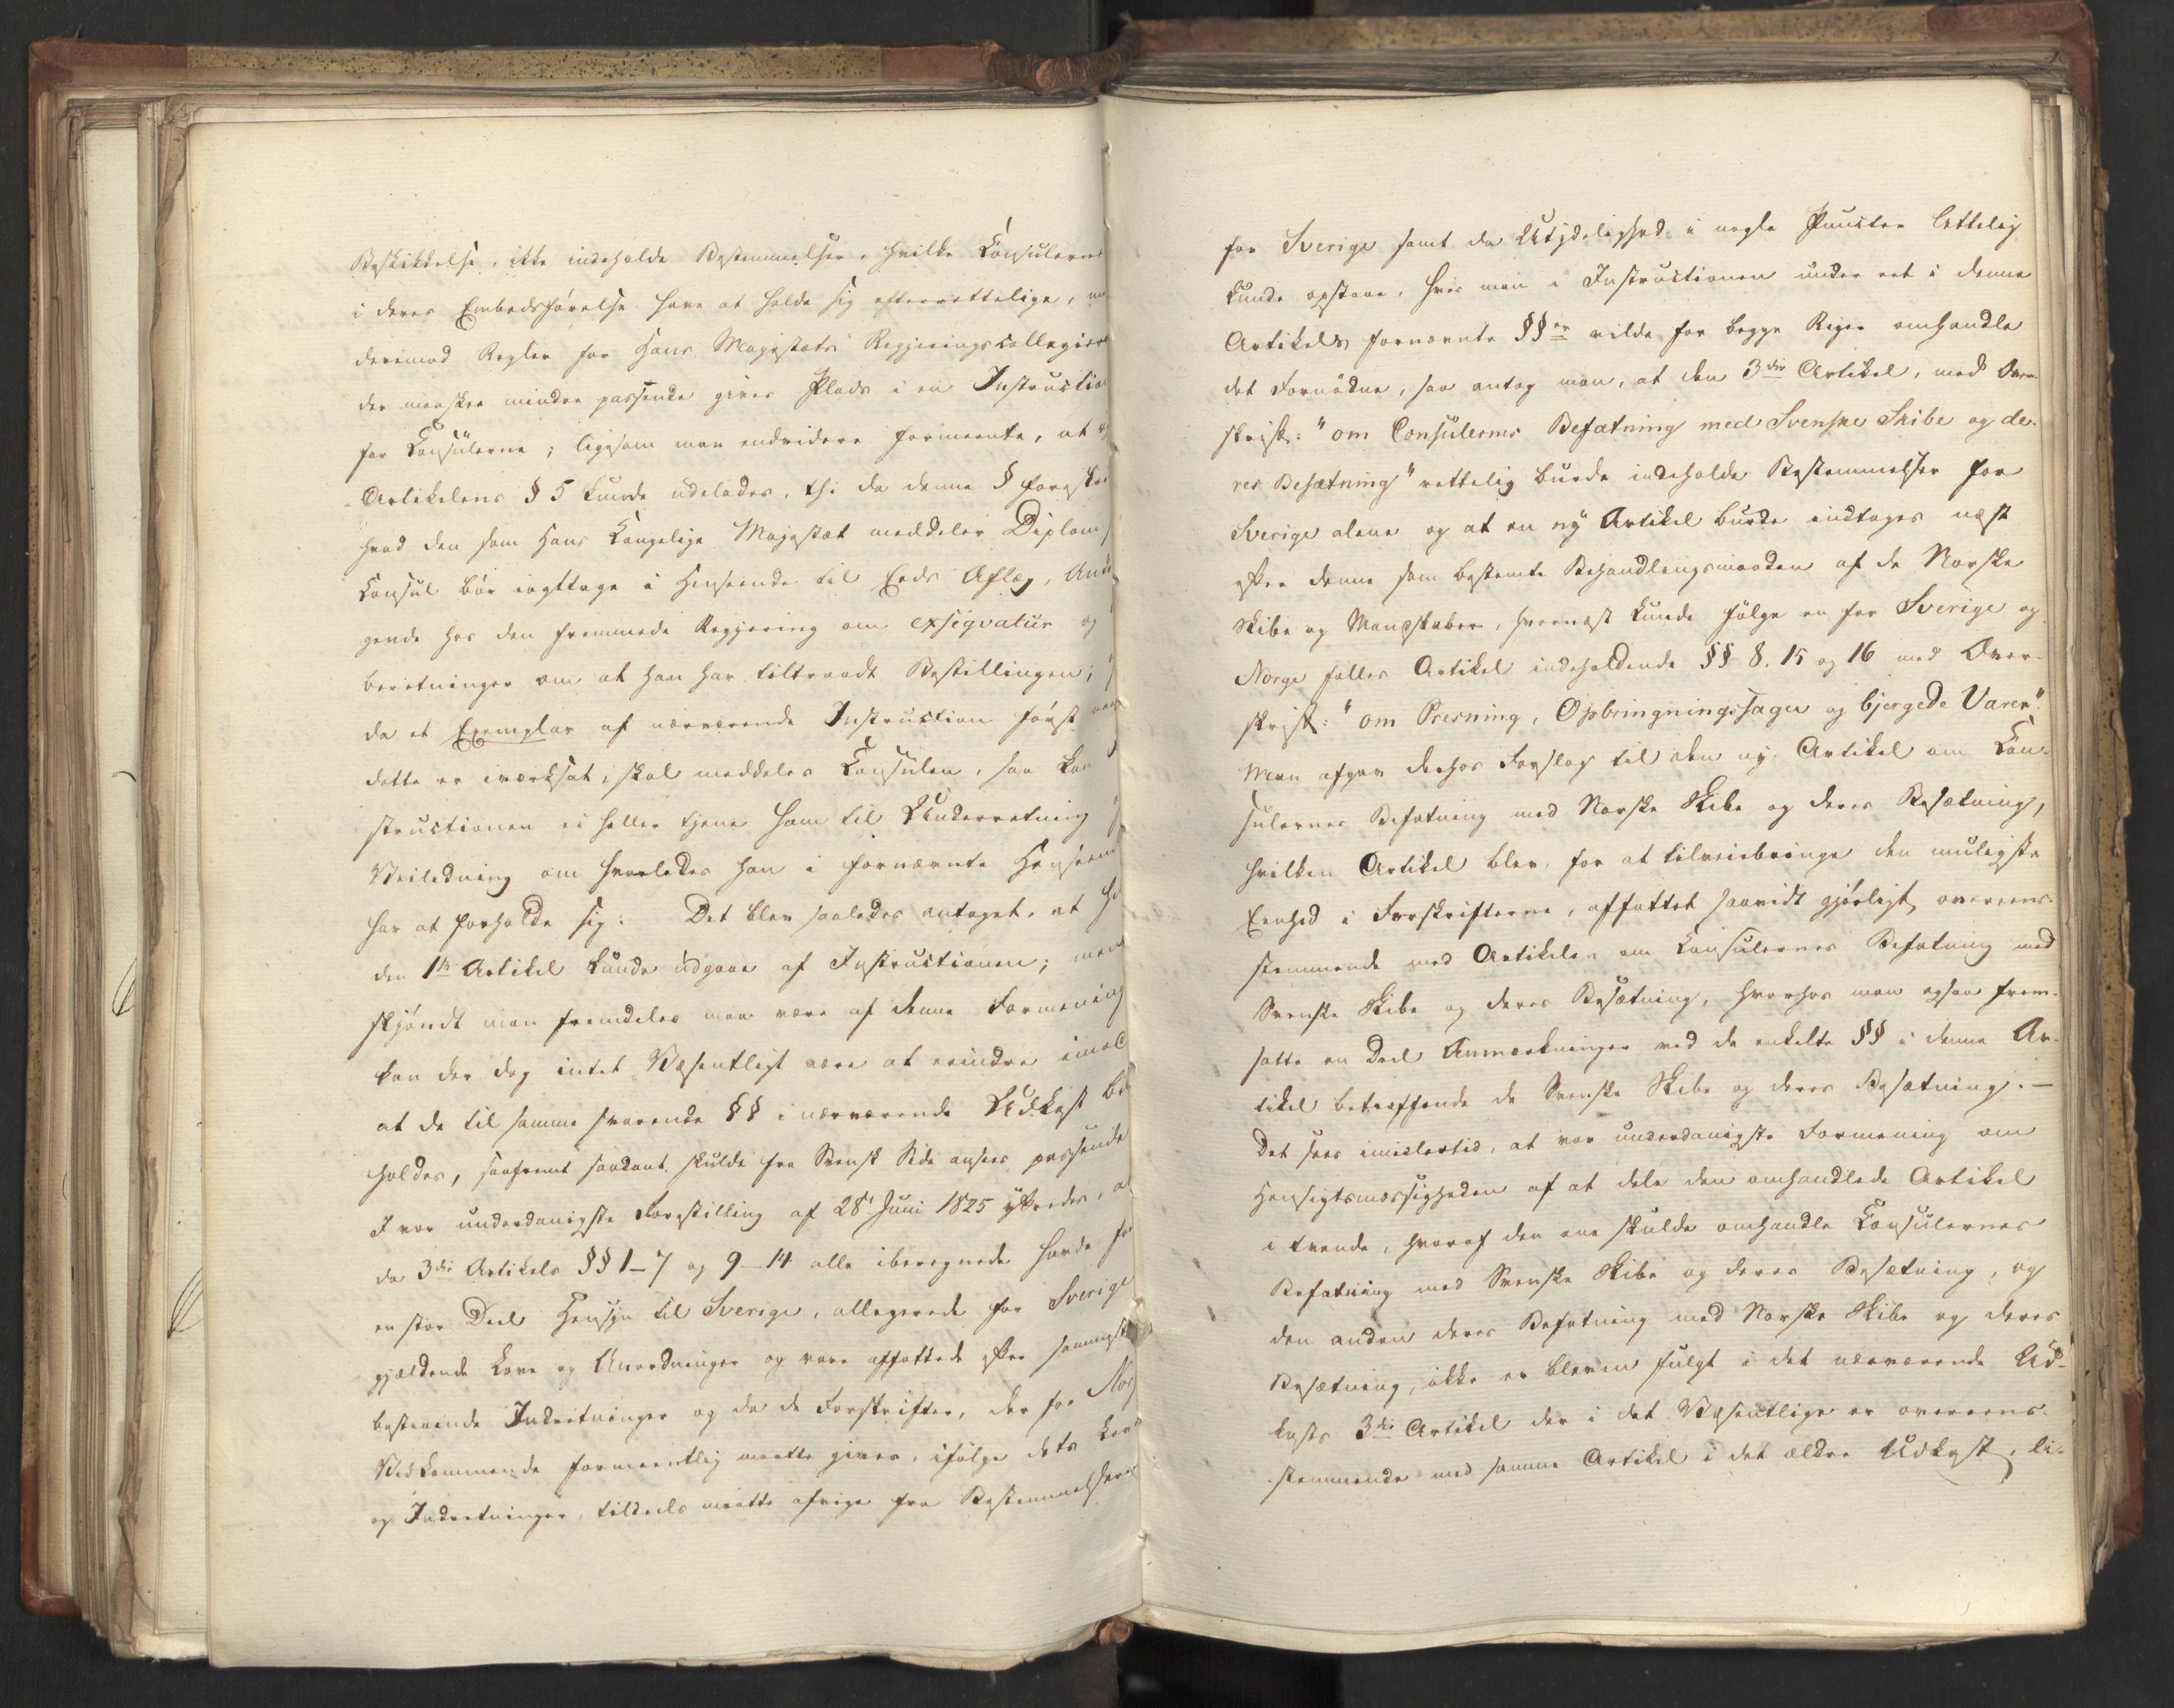 Beskikkelse, ikke indeholde Bestemmelser, hvilke Consulerne
i deres Embedsførelse have at holde sig efterrettelige,
derimod Regler for Hans Majestæts Regjeringscollegier
der maaskee mindre passende gives Plads i en Instructio
for Consulerne; ligesom man endvidere formeente, at
Artikelens § 5 kunde udelades, thi da denne § foreskri
hvad den som Hans Kongelige Majestæt meddeler Diplom
Consul bør iagttage i Henseende til Eeds Aflæg, Ansø
gende hos den fremmede Regjering om exseqvatur og
beretninger om at han har tiltraadt Bestillingen;
da et Exemplar af nærværende Instruction først naar
dette er iværksat, skal meddeles Consulen, saa kan
structionen ei heller tjene ham til Underretning
Veiledning om hvorledes han i fornævnte Henseend
har at forholde sig. Det blev saaledes antaget, at he
den 1ste Artikel kunde udgaae af Instructionen; men
skjøndt man fremdeles maa være af denne Formening
kan der dog intet Væsentligt være at erindre imod
at de til samme svarende §§ i nærværende Udkast be
holdes, saafremt saadant skulde fra Svensk Side ansees passende
I vor underdanigste Forestilling af 28de Juni 1825 yttredes, at
da 3die Artikels §§ 1-7 og 9-14 alle iberegnede havde for
en stor Deel Hensyn til Sverige, allegerede for Sverige
gjældende Love og Anordninger og vare affattede efter sammest
bestaaende Indretninger og da de Forskrifter, der for Nor
Vedkommende formeentlig maatte gives, ifølge dets Love
og Indretninger, tildeels maatte afvige fra Bestemmelserne
for Sverige samt da Utydelighed i nogle Puncter lettelig
kunde opstaae, hvis man i Instructionen under eet i denne
Artikels fornævnte §§er vilde for begge Riger omhandle
det Fornødne, saa antog man, at den 3die Artikel, med Over-
skrift: "om Consulernes Befatning med Svenske Skibe og de-
res Besætning" rettelig burde indeholde Bestemmelser for
Sverige alene og at en ny Artikel burde indtages næst
efter denne som bestemte Behandlingsmaaden af de Norske
Skibe og Mandskaber, hvornæst kunde følge en for Sverige og
Norge fælles Artikel indeholdende §§ 8. 15 og 16 med Over-
skrift: "om Presning, Opbringningssager og bjergede Varer".
Man afgav derhos Forslag til den ny Artikel om Con-
sulernes Befatning med Norske Skibe og deres Besætning,
hvilken Artikel blev, for at tilveiebringe den muligste
Eenhed i Forskrifterne, affattet saavidt gjørligt overeens-
stemmende med Artikelen om Consulernes Befatning med
Svenske Skibe og deres Besætning, hvorhos man ogsaa frem-
satte en Deel Anmærkninger ved de enkelte §§ i denne Ar-
tikel betreffende de Svenske Skibe og deres Besætning. —
Det sees imidlertid, at vor underdanigste Formening om
Hensigtsmæssigheden af at dele den omhandlede Artikel
i tvende, hvoraf den ene skulde omhandle Consulernes
Befatning med Svenske Skibe og deres Besætning, og
den anden deres Befatning med Norske Skibe og deres
Besætning, ikke er bleven fulgt i det nærværende Ud-
kasts 3die Artikel der i det Væsentlige er overeens-
stemmende med samme Artikel i det ældre Udkast, li-